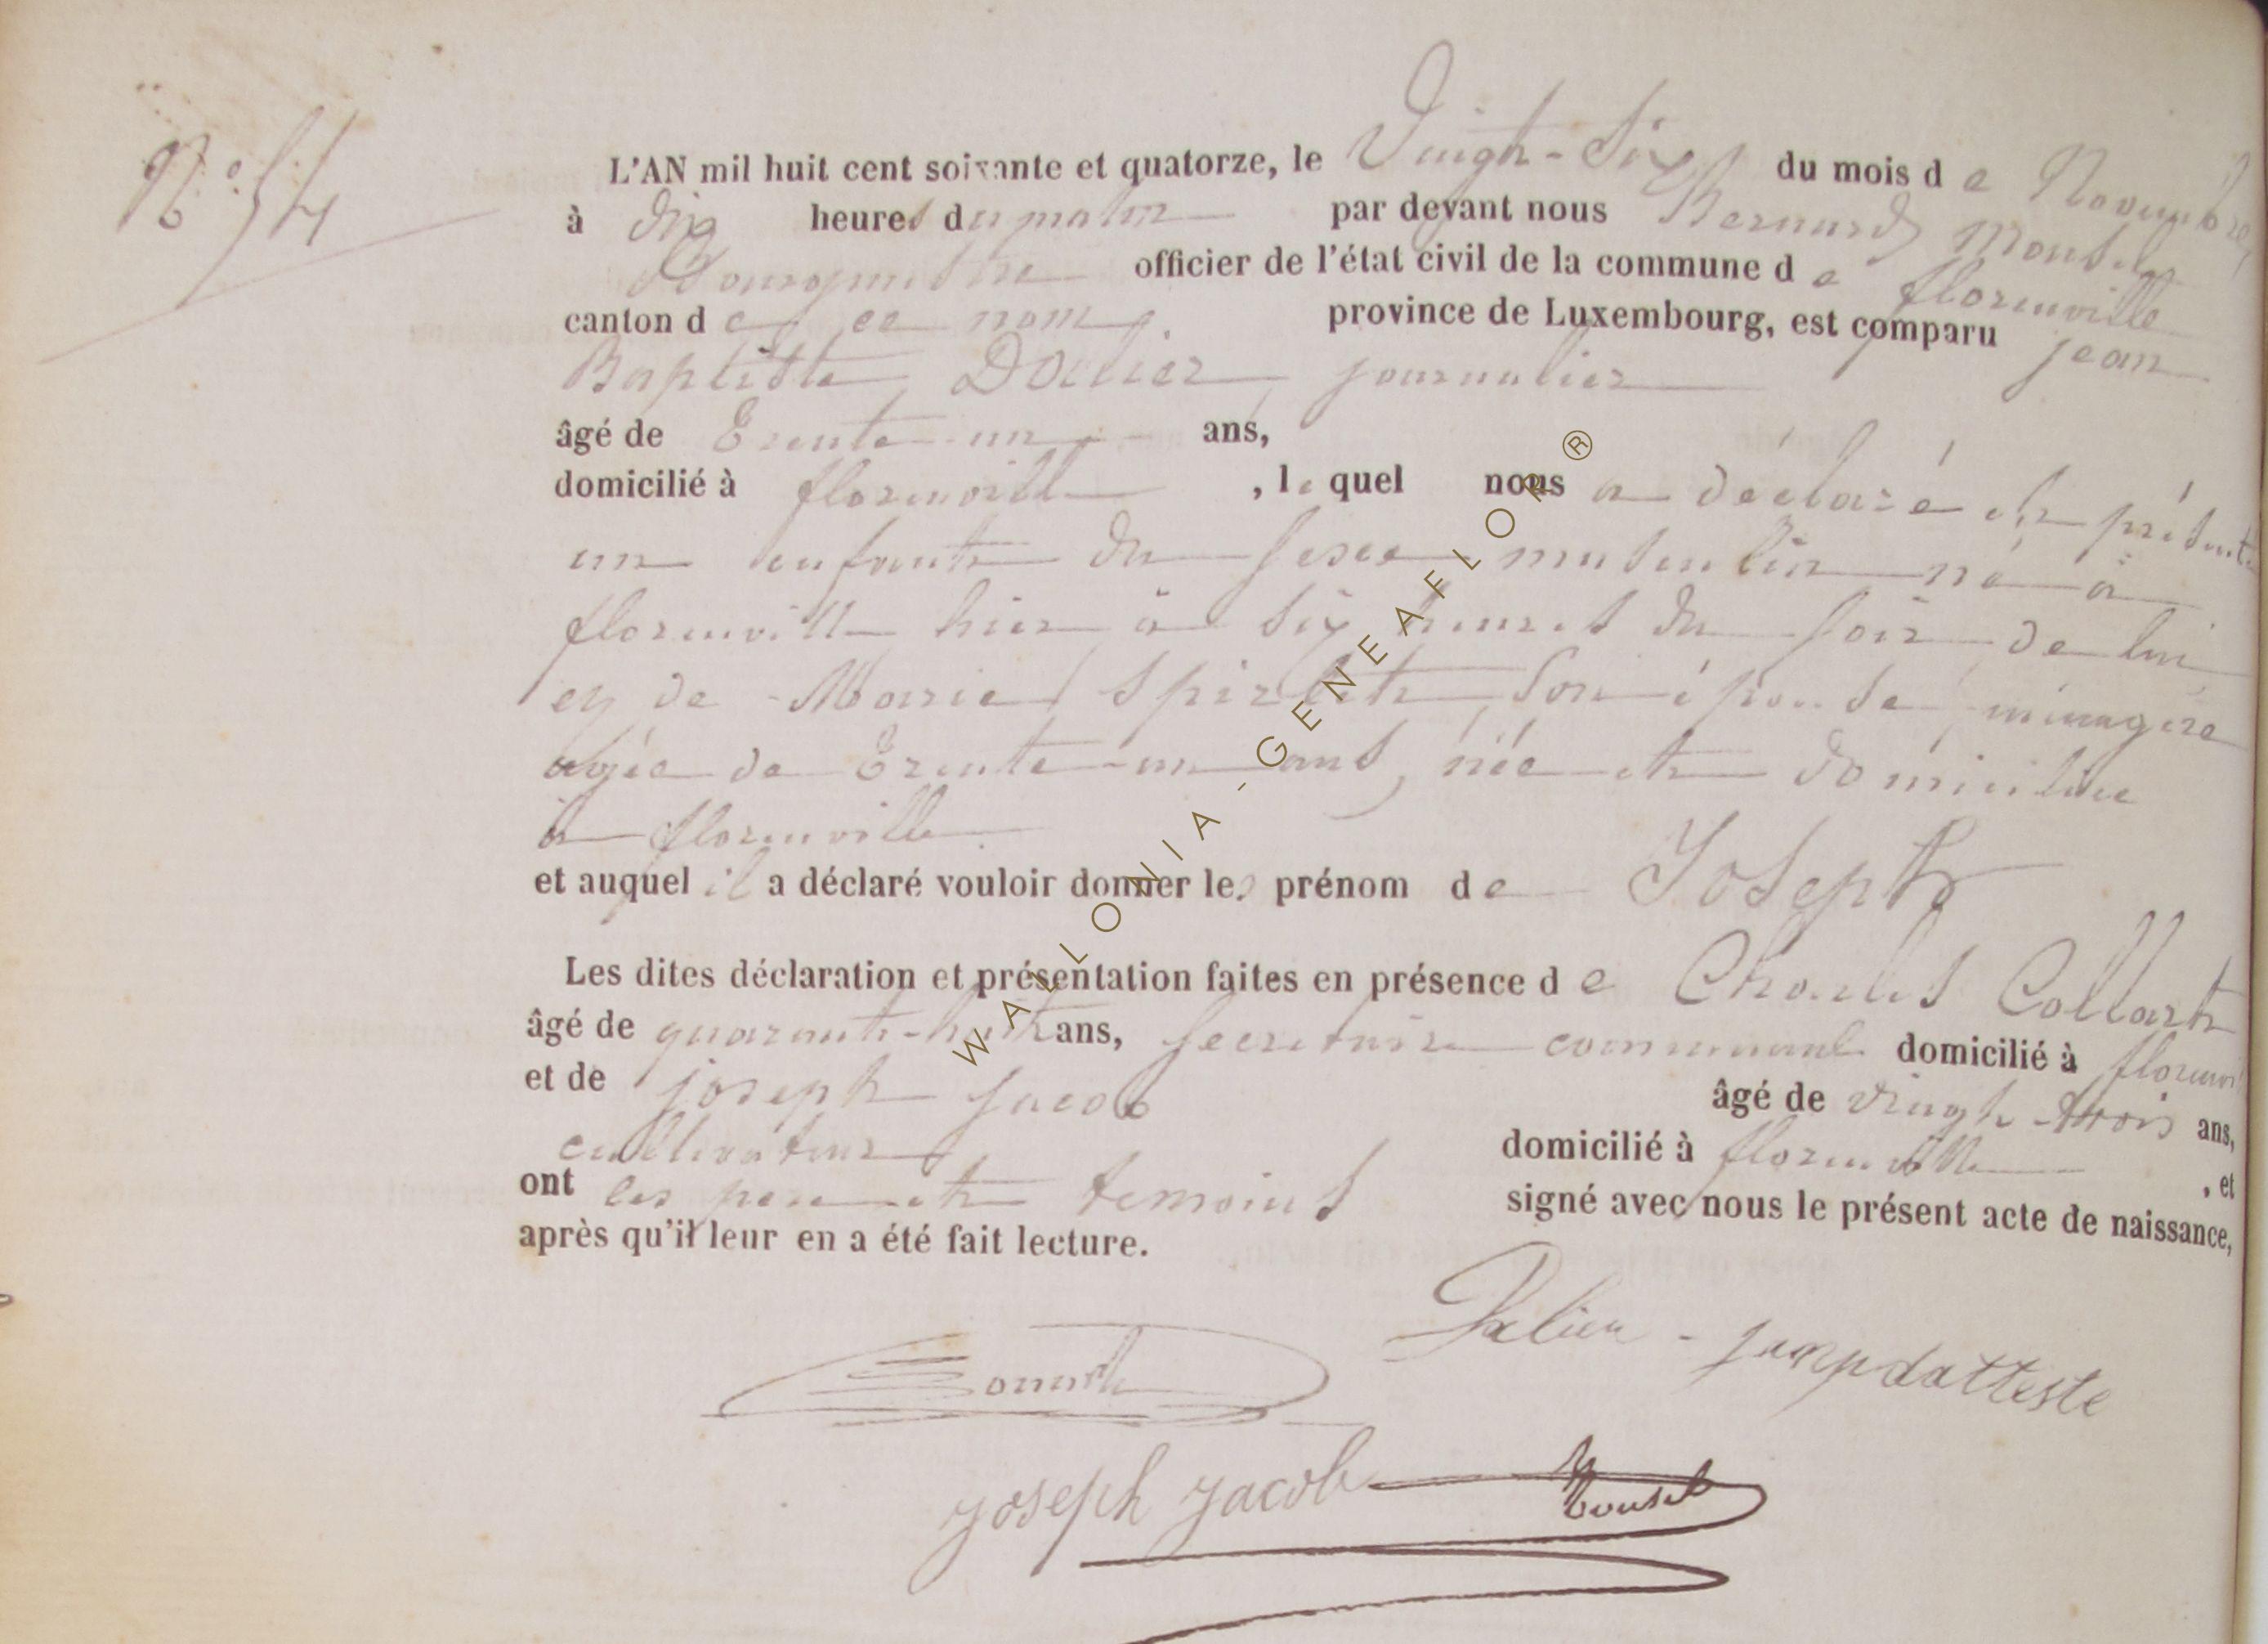 N° 54
L'AN mil huit cent soixante et quatorze, le Vingt-Six du mois de Novembre,
à dix heures du matin par devant nous Bernard Monsel
Bourgmestre officier de l'état civil de la commune de florenville
canton de ce nom, province de Luxembourg, est comparu jean
Baptiste Dalier, journalier
âgé de Trente-un ans,
domicilié à florenville, lequel nous a déclaré et présenté
un enfant du sexe masculin né à
florenville hier à six heures du soir de lui
et de Marie Spirlet son épouse, ménagère
agée de Trente-un ans, née et domiciliée
à florenville
et auquel il a déclaré vouloir donner les prénom de Joseph
Les dites déclaration et présentation faites en présence de Charles Collart
âgé de quarante-huit ans, Secretaire communal domicilié à florenvi
et de joseph jacob âgé de vingt trois ans,
cultivateur domicilié à florenville, et
ont les pere et temoins signé avec nous le présent acte de naissance,
après qu'il leur en a été fait lecture.
Dalier - janpdatteste
joseph jacob Monsel
WALLONIA-GENEAFLOR®